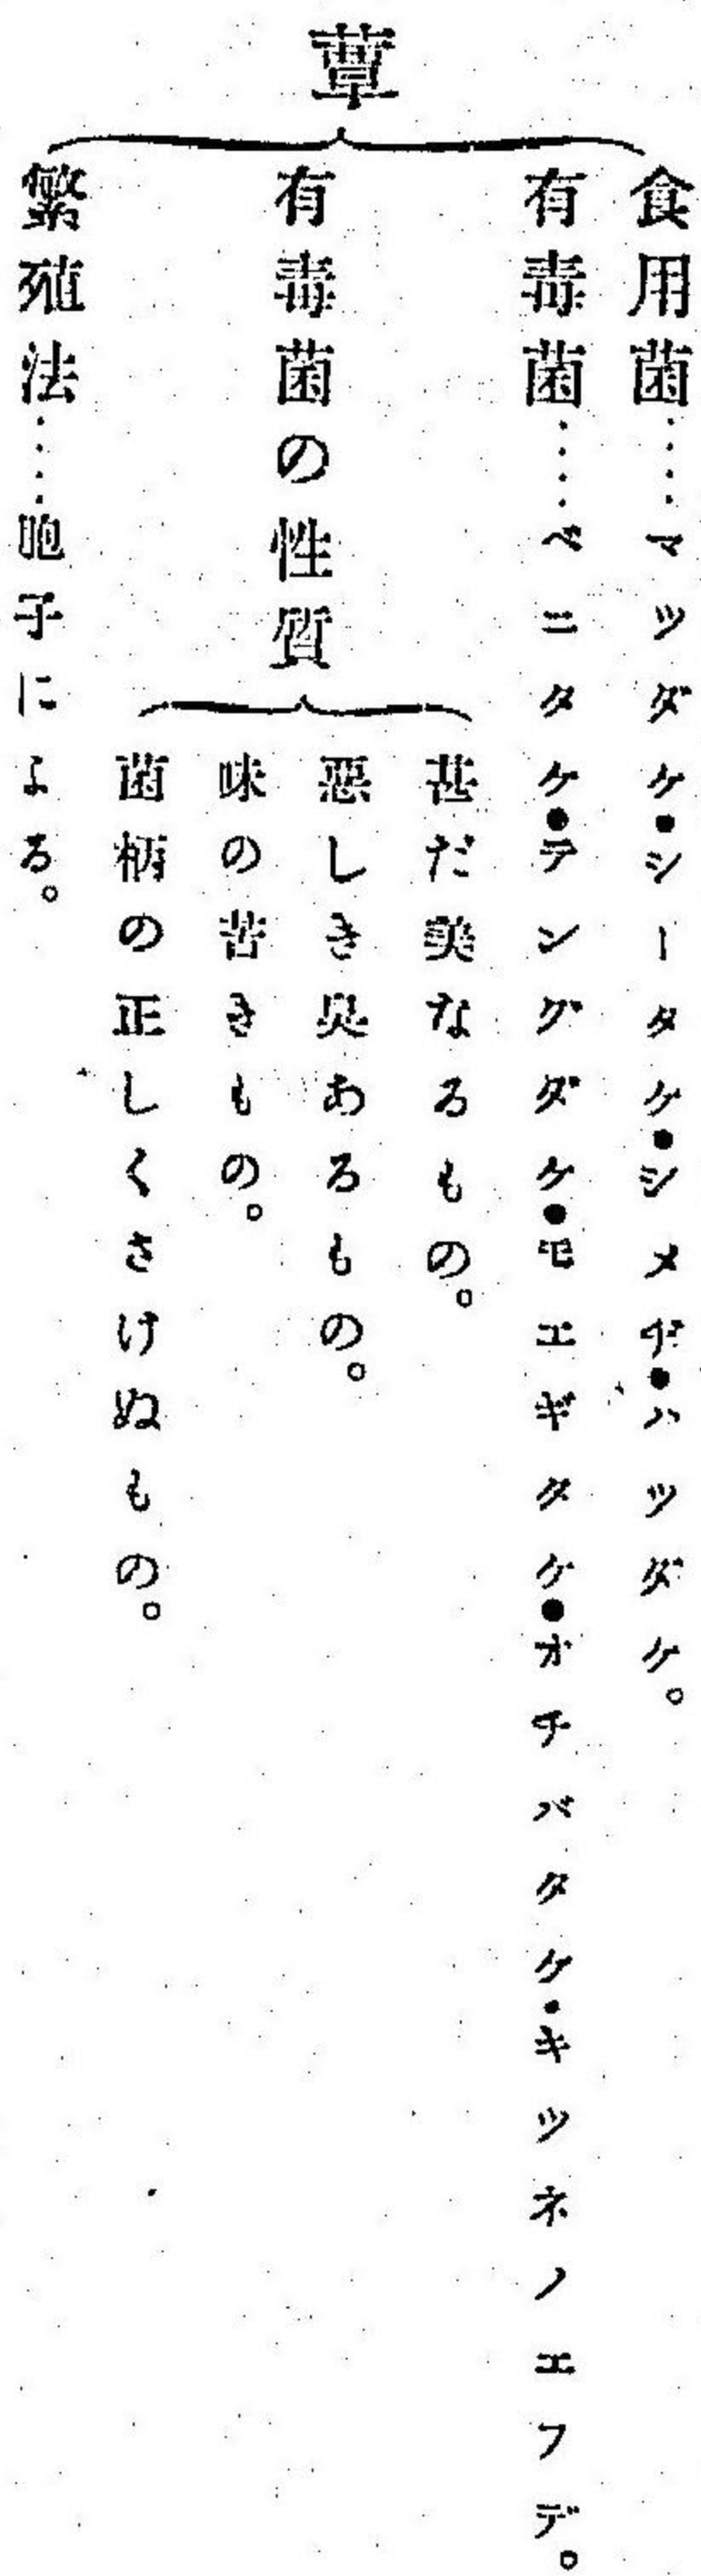 蕈
食用菌……マツダケ●シータケ●シメヂ●ハツダケ。
有毒菌……ベニタケ●テングダケ●モエギタケ●オチバタケ・キツネノエフデ。
有毒菌の性質
甚だ美なるもの。
惡しき臭あるもの。
味の苦きもの。
菌柄の正しくさけぬもの。
繁殖法……胞子による。